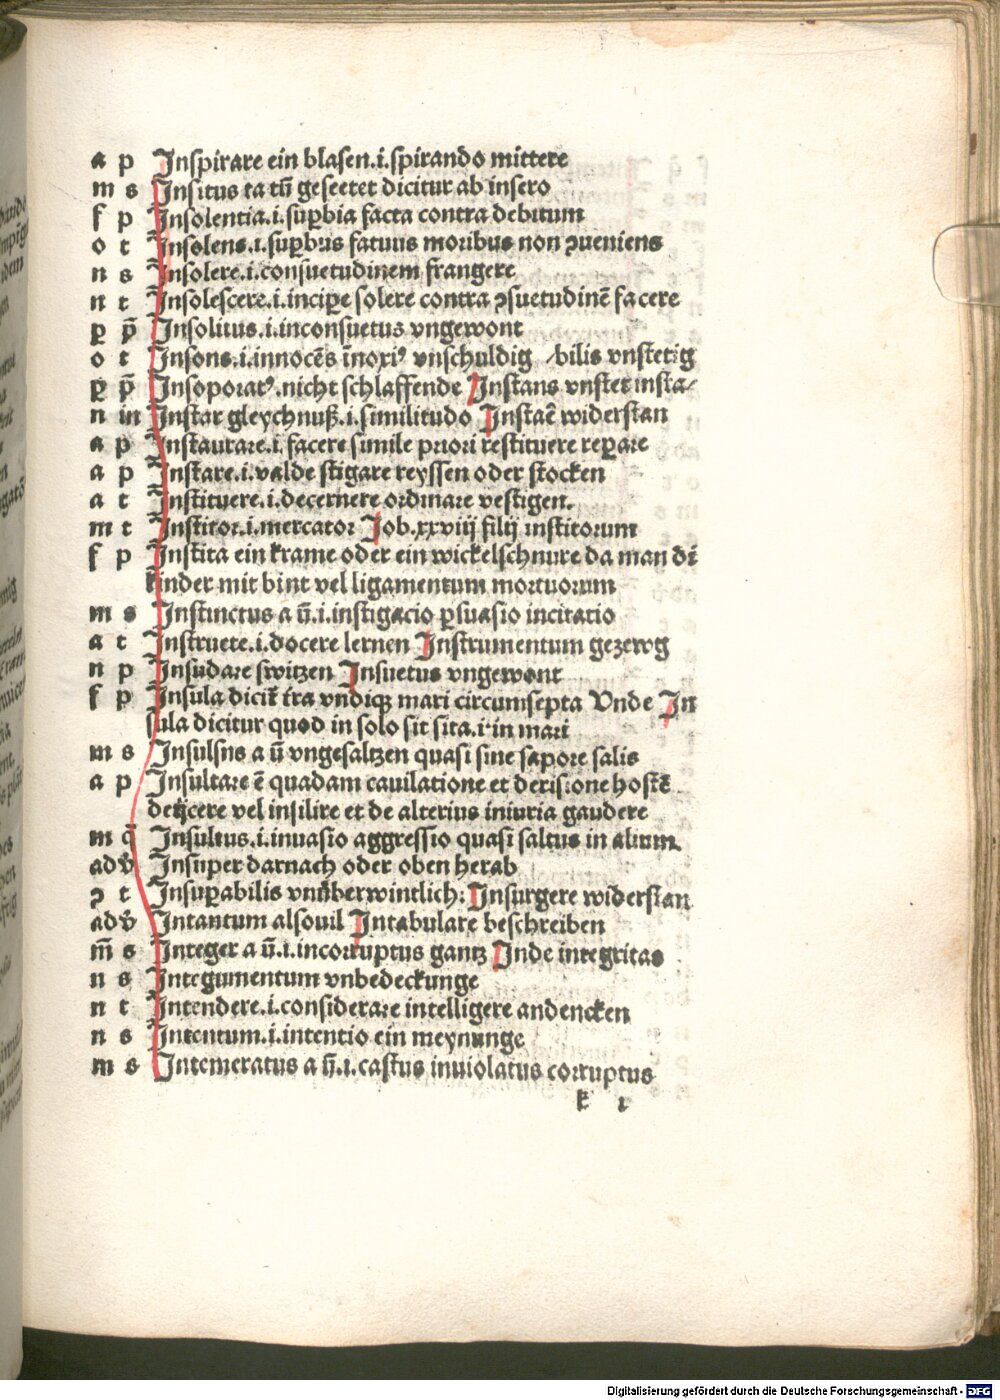 a p Inſpirare ein blaſen.i.ſpirando mittere
m s Inſitus ta tū geſeetet dicitur ab inſero
f p Inſolentia.i.ſuꝑbia facta contra debitum
o t Inſolens.i.ſuꝑbus fatuus moribus non ꝯueniens
n s Inſolere.i.conſuetudinem frangere
n t Inſoleſcere.i.inciꝑe ſolere contra ꝯſuetudinē facere
ꝑ p̄ Inſolitus.i.inconſuetus vngewont
o t Inſons.i.innocēs īnoxiꝰ vnſchuldig /bilis vnſtetig
ꝑ p̄ Inſoporatꝰ.nicht ſchlaffende Inſtans vnſtet inſta/
n in Inſtar gleychnuß.i.ſimilitudo Inſtaē widerſtan
a p Inſtaurare.i.facere ſimile priori reſtituere reꝑare
a p Inſtare.i.valde ſtigare reyſſen oder ſtocken
a t Inſtituere.i.decernere ordinare veſtigen.
m t Inſtitor.i.mercator Job.xxviij filij inſtitorum
f p Inſtita ein krame oder ein wickelſchnure da man dī
kinder mit bint vel ligamentum mortuorum
m s Inſtinctus a ū.i.inſtigacio ꝑſuaſio incitatio
a t Inſtruete.i.docere lernen Inſtrumentum gezewg
n p Inſudare ſwitzen Inſuetus vngewont
f p Inſula dicit̄ t̄ra vndiqꝫ mari circumſepta Vnde In
ſula dicitur quod in ſolo ſit ſita.i in mari
m s Inſulſns a ū vngeſaltzen quaſi ſine ſapore ſalis
a p Inſultare ē quadam cauilatione et deriſione hoſtē
deijcere vel inſilire et de alterius iniuria gaudere
m q̄ Inſultus.i.inuaſio aggreſſio quaſi ſaltus in alium.
adv̄ Inſuper darnach oder oben herab
ꝯ t Inſuꝑabilis vnüberwintlich: Inſurgere widerſtan
adv̄ Intantum alſouil Intabulare beſchreiben
m̄ s Integer a ū.i.incorruptus gantz Inde integritas
n s Integumentum vnbedeckunge
n t Intendere.i.conſiderare intelligere andencken
n s Intentum.i.intentio ein meynunge
m s Intemeratus a ū.i.caſtus inuiolatus corruptus
k i
Digitalisierung gefördert durch die Deutsche Forschungsgemeinschaft - DFG